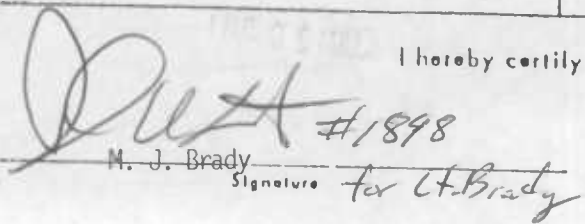 I hereby certify
#1898
M. J. Brady
Signature for Lt. Brady